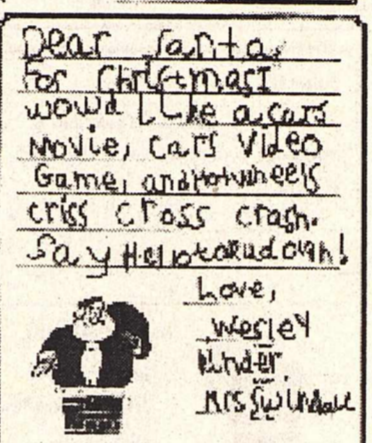 Dear Santa,
For Christmas I
would Like a cars
Movie, cars Video
Game, and Hotwheels
criss cross crash.
Say Hello to Rudolph!
Love,
Wesley
Kinder
Mrs